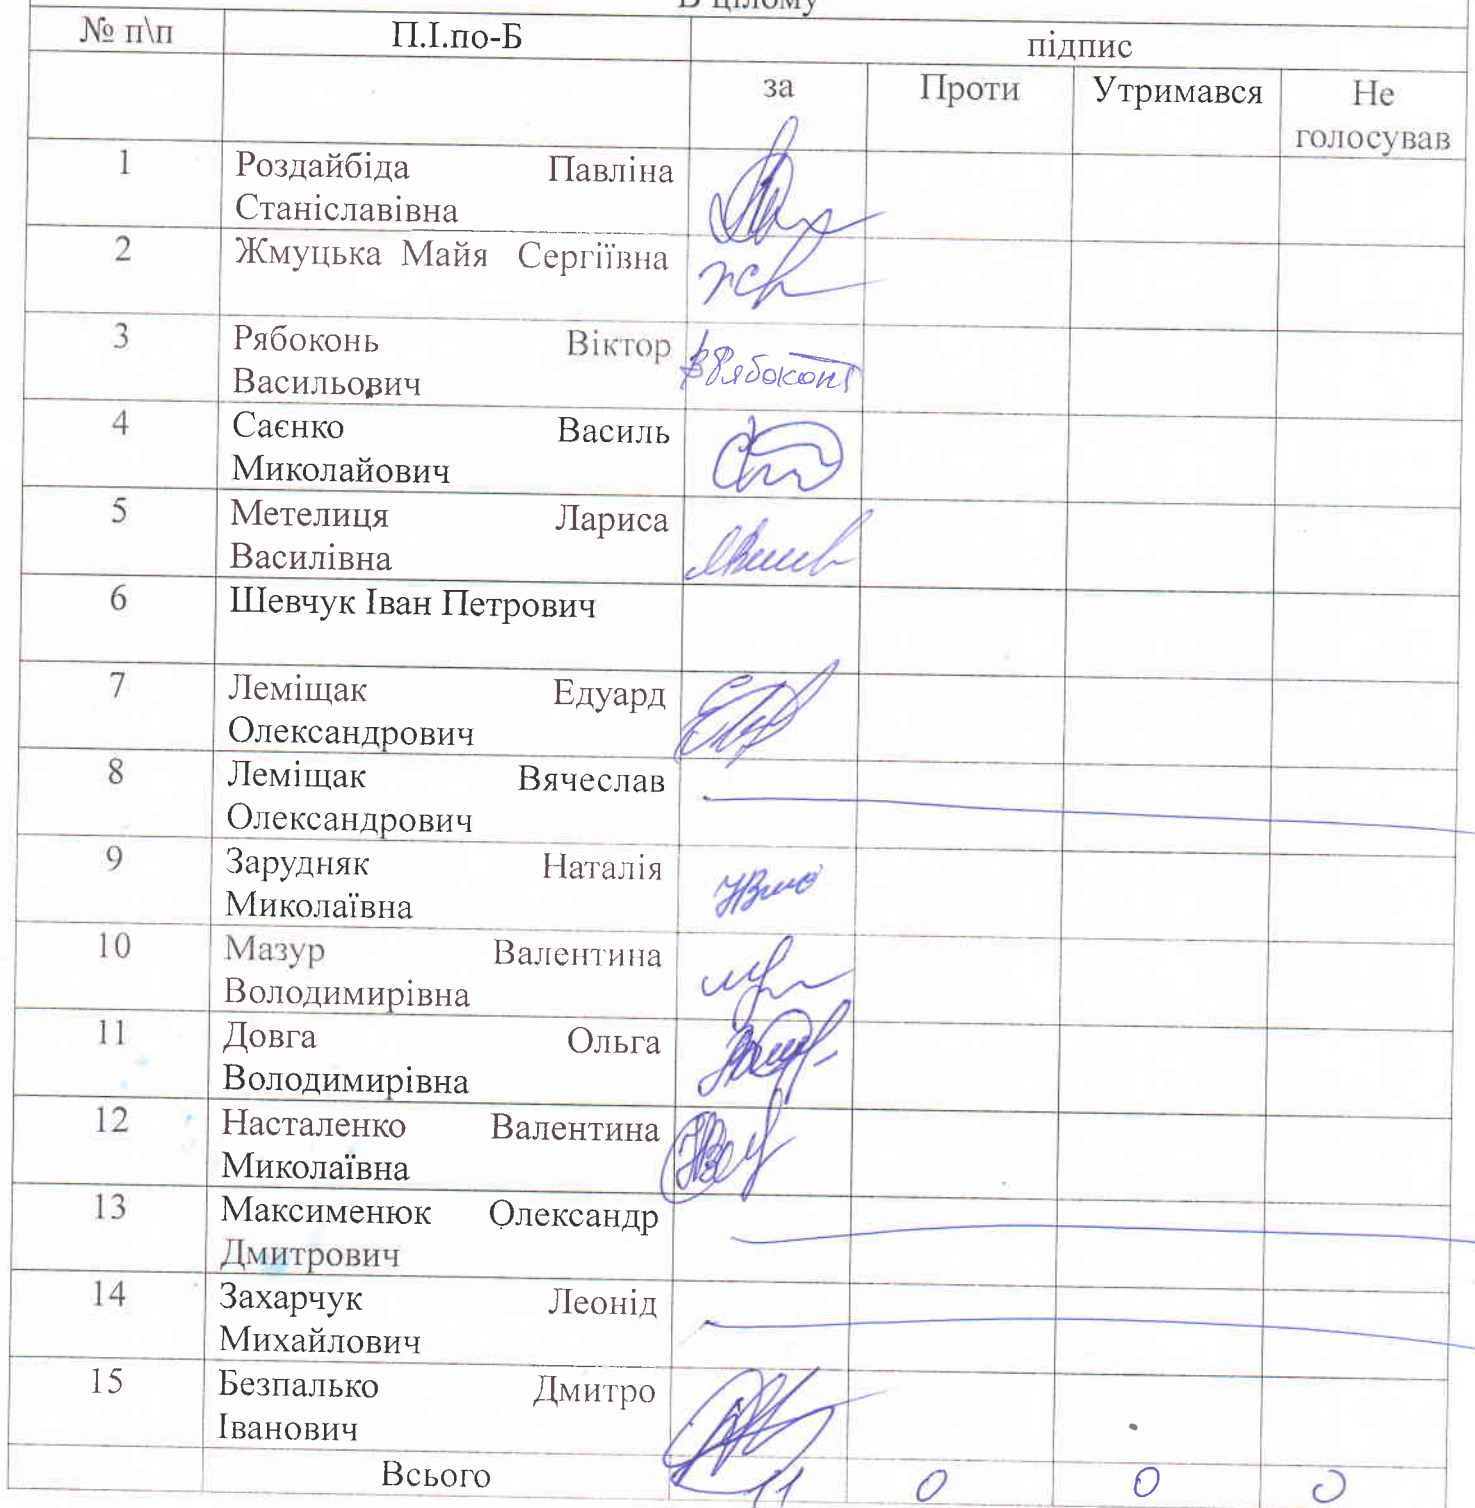 В цілому
№ п\п П.І.по-Б підпис
за Проти Утримався Не
голосував
1 Роздайбіда Павліна
Станіславівна
2 Жмуцька Майя Сергіївна
3 Рябоконь Віктор ВРябоконь
Васильович
4 Саєнко Василь
Миколайович
5 Метелиця Лариса
Василівна
6 Шевчук Іван Петрович
7 Леміщак Едуард
Олександрович
8 Леміщак Вячеслав
Олександрович
9 Зарудняк Наталія
Миколаївна
10 Мазур Валентина
Володимирівна
11 Довга Ольга
Володимирівна
12 Насталенко Валентина
Миколаївна
13 Максименюк Олександр
Дмитрович
14 Захарчук Леонід
Михайлович
15 Безпалько Дмитро
Іванович
Всього 11 0 0 0